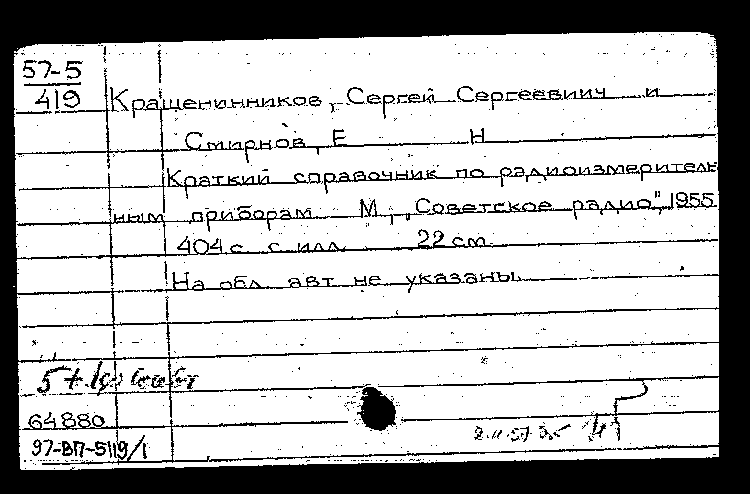 57-5
419
Кращенинников, Сергей Сергеевиич и
Смирнов, Е Н
Краткий справочник по радиоизмеритель
ным приборам М, „Советское радио", 1955
404 с с илл 22 см
На обл авт не указаны
64880
97-ВП-5119/1